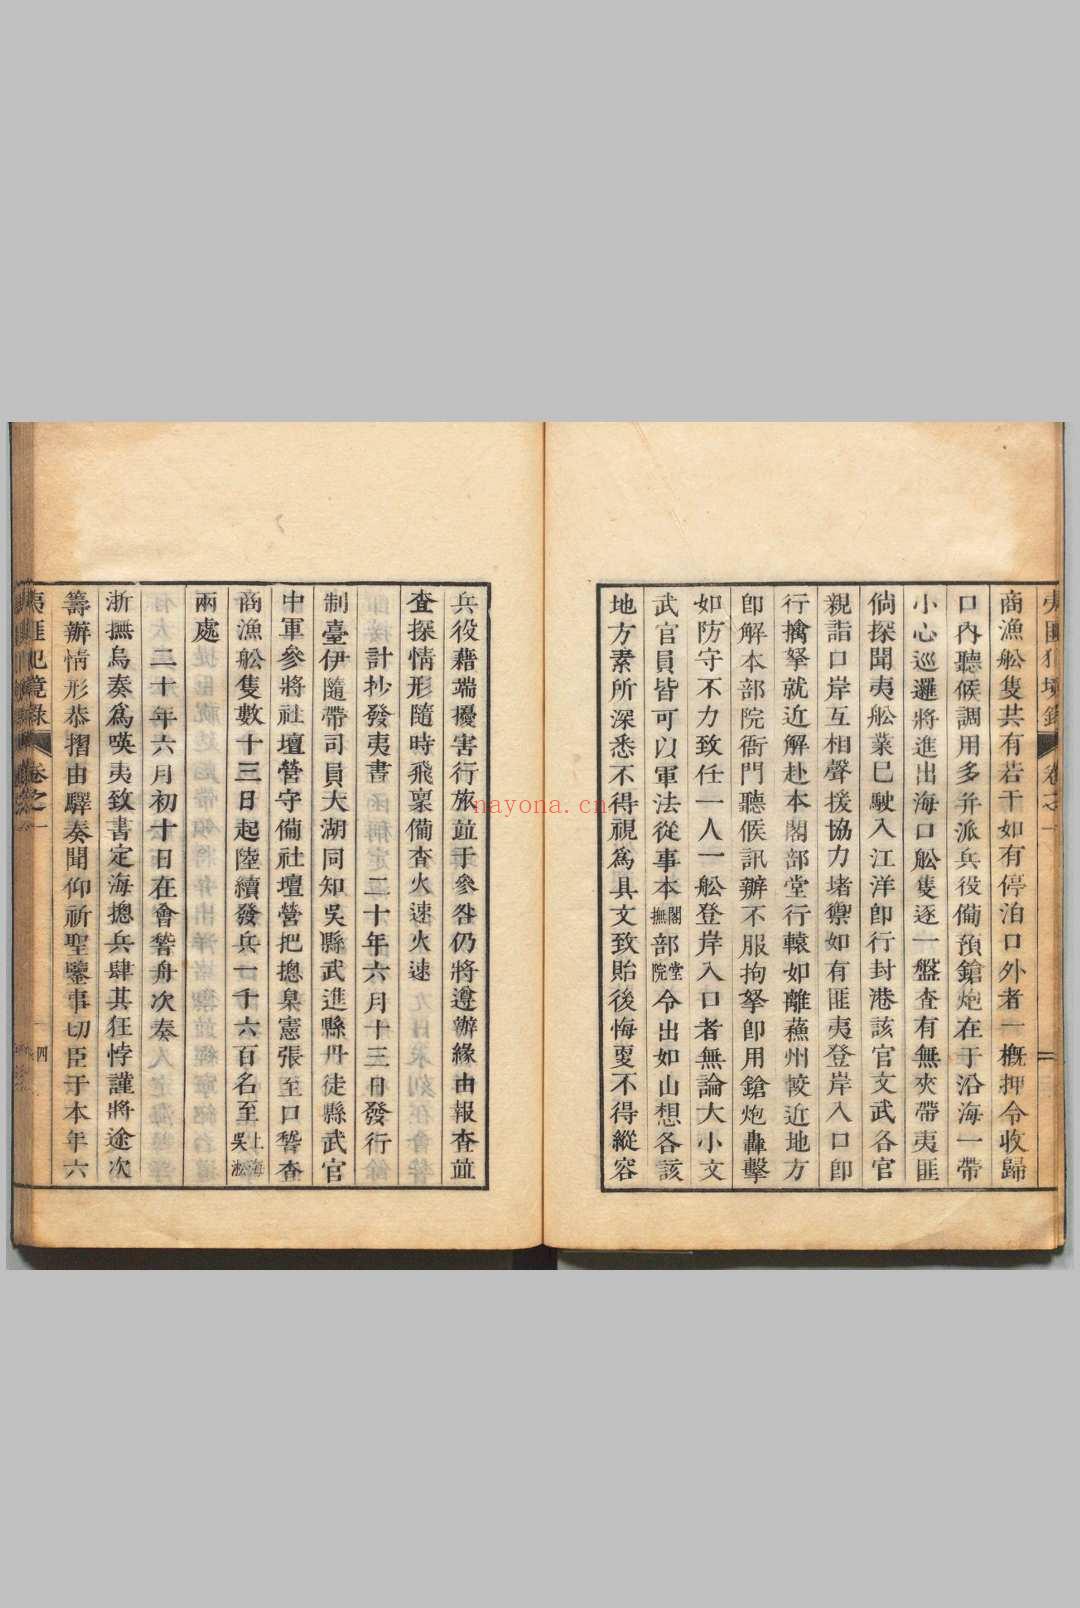 商漁船隻共有若干如有停泊口外者一概押令收歸
口內聽候調用多弁派兵役備預鎗炮在于沿海一帶
小心巡邏將進出海口船隻逐一盤查有無夾帶夷匪
倘探聞夷船業已駛入江洋卽行封港該官文武各官
親詣口岸互相聲援協力堵禦如有匪夷登岸入口卽
行擒拏就近解赴本閣部堂行轅如離蘓州較近地方
卽解本部院衙門聽候訊辦不服拘拏卽用鎗炮轟擊
如防守不力致任一人一船登岸入口者無論大小文
武官員皆可以軍法從事本閣撫部堂院令出如山想各該
地方素所深悉不得視爲具文致貽後悔更不得縱容
兵役藉端擾害行旅並于參咎仍將遵辦緣由報查並
查探情形隨時飛稟備查火速火速
計抄發夷書 二十年六月十三日發行
制臺伊隨帶司員大湖同知吳縣武進縣丹徒縣武官
中軍參將社壇營守備社壇營把摠臬憲張至口詧查
商漁船隻數十三日起陸續發兵一千六百名至上海吳淞
兩處
二十年六月初十日在會詧舟次奏
浙撫烏奏爲嘆夷致書定海摠兵肆其狂悖謹將途次
籌辦情形恭摺由驛奏聞仰祈聖鑒事切臣于本年六
夷匪犯境錄 卷之一 四
nayona.cn